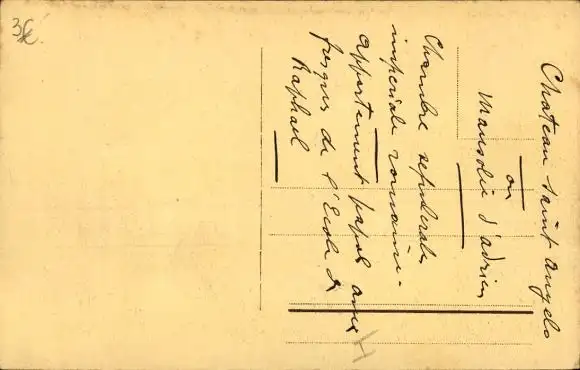 Chateau saint Angelo
ou
Mausolée d'adrien
Chambre sepulcrale
imperiale romaine.
Appartement papal avec
fresques de l'Ecole de
Raphael